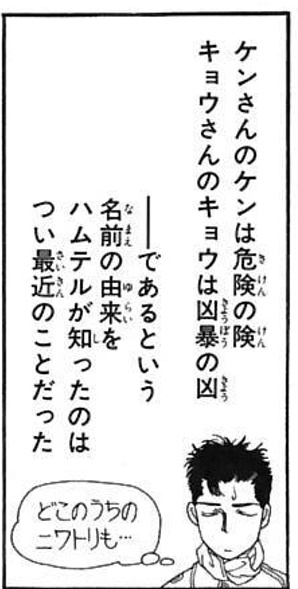 ケンさんのケンは危険の険
キョウさんのキョウは凶暴の凶
――であるという
名前の由来を
ハムテルが知ったのは
つい最近のことだった
どこのうちの
ニワトリも…